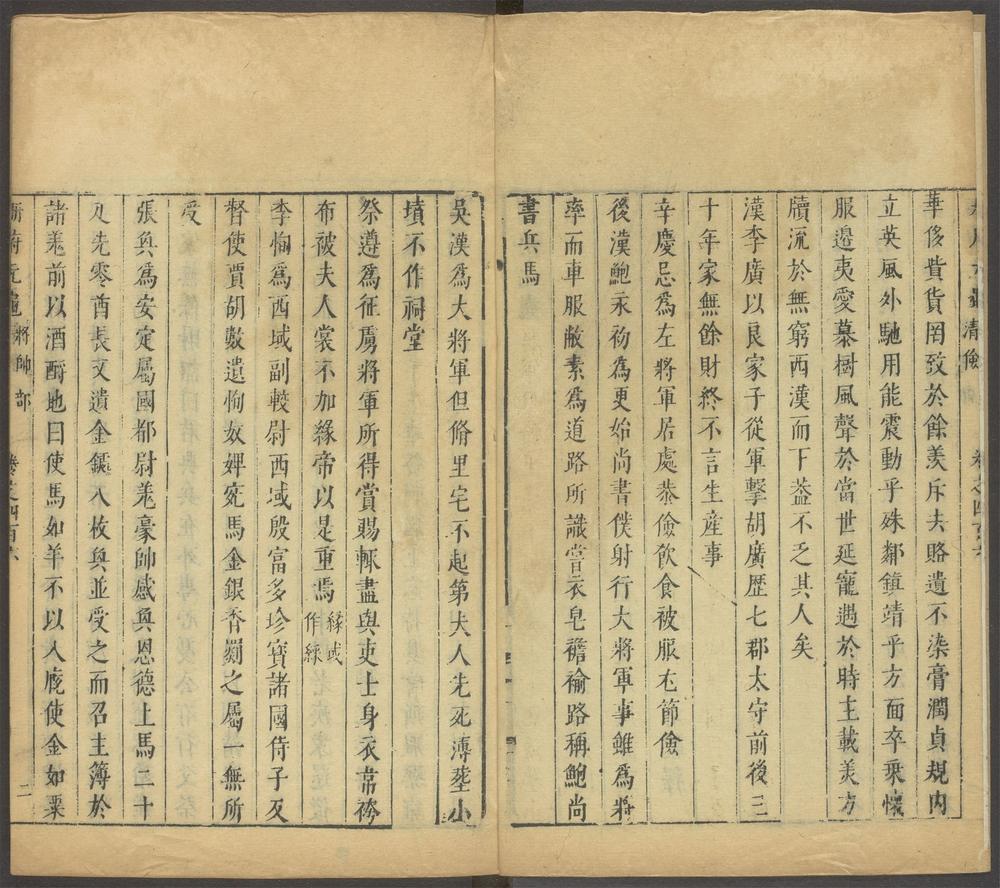 清儉
華侈貲貨罔致於餘羡斥去賂遺不染膏潤貞規内
立英風外馳用能震動乎殊鄰鎮靖乎方面卒乘懐
服邉夷愛慕樹風聲於當世延寵遇於時主載羙方
牘流於無窮西漢而下葢不乏其人矣
漢李廣以良家子從軍擊胡廣歴七郡太守前後三
十年家無餘財終不言生産事
辛慶忌為左將軍居處恭儉飲食被服尤節儉
後漢鮑永初為更始尚書僕射行大將軍事雖為將
率而車服敝素為道路所識嘗衣皂襜褕路稱鮑尚
書兵馬
吳漢為大將軍但脩里宅不起第夫人先死薄塟小
墳不作祠堂
祭遵為征虜將軍所得賞賜輒盡與吏士身衣韋袴
布被夫人裳不加緣帝以是重焉緣或作綵
李恂為西域副較尉西域殷富多珍寳諸國侍子及
督使賈胡數遺恂奴婢宛馬金銀香罽之屬一無所
受
張奐為安定屬國都尉羗豪帥感奐恩德上馬二十
疋先零酋長又遺金鐻八枚奐並受之而召主簿於
諸羗前以酒酹地曰使馬如羊不以入廐使金如粟
册府元龜 將帥部 卷之四百六 二